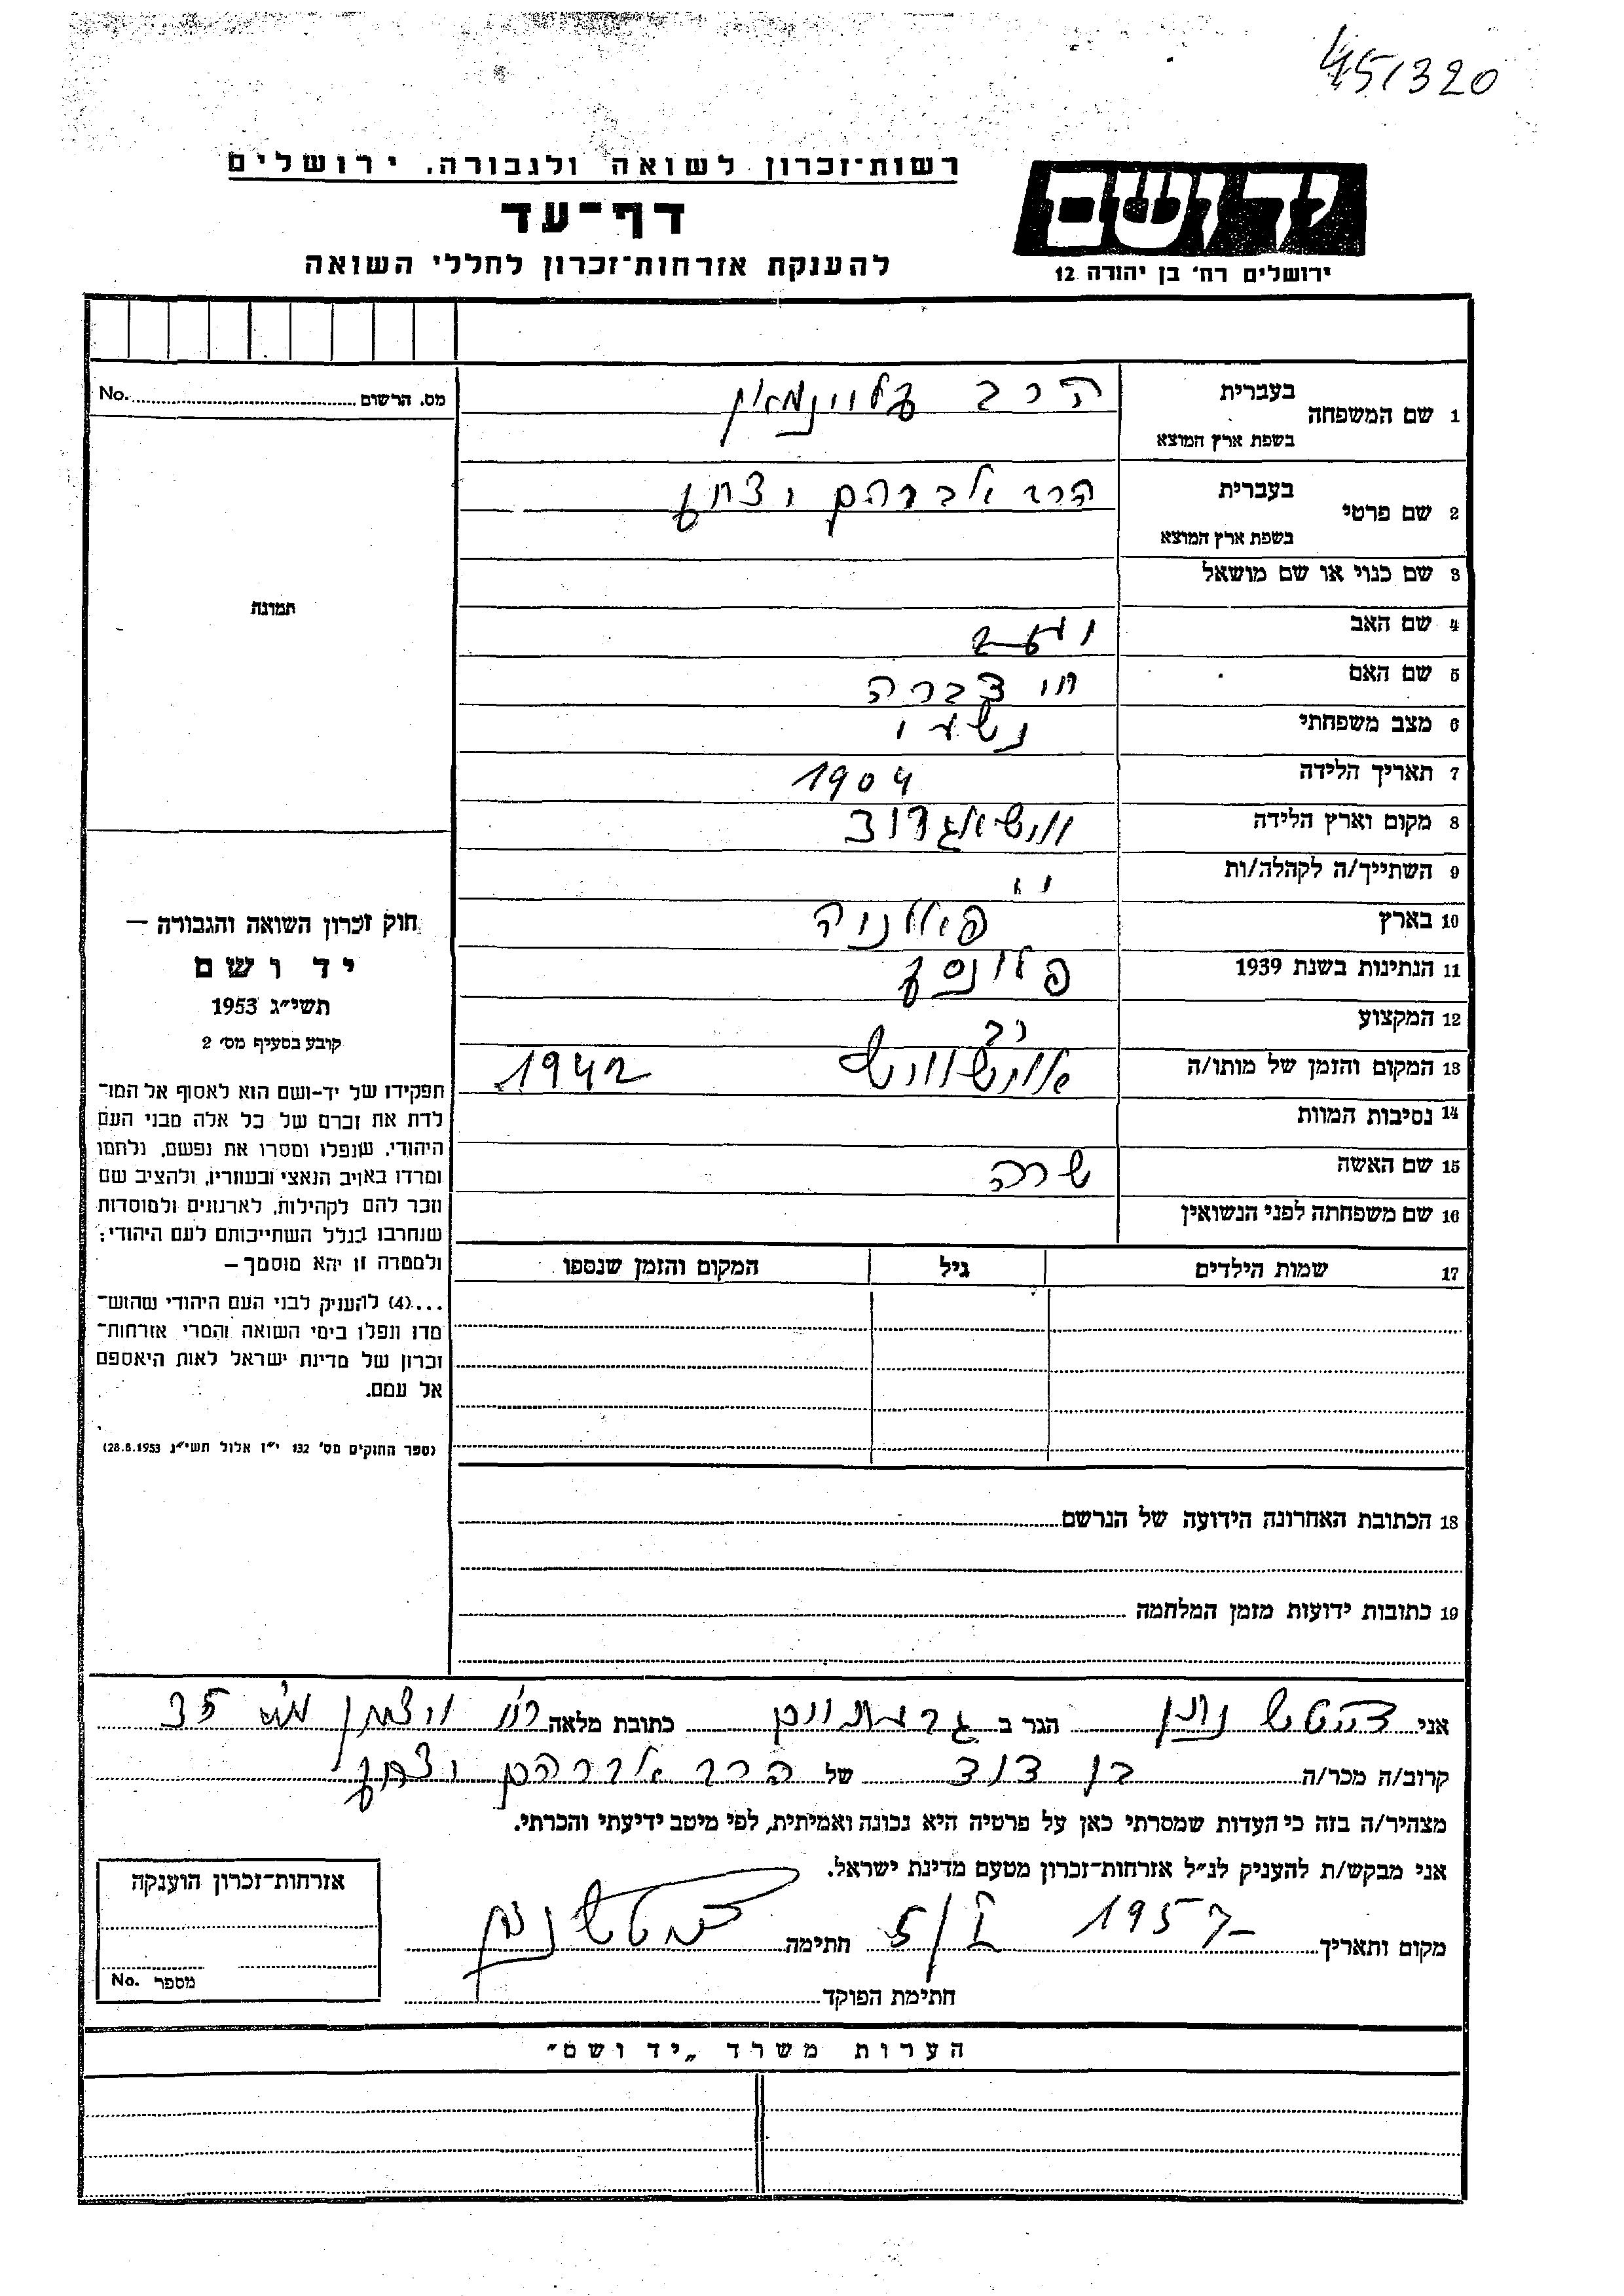 45/320
רשות־זכרון לשואה ולגבורה, ירושלים
יד ושם
דף־עד
להענקת אזרחות־זכרון לחללי השואה
ירושלים רח' בן יהודה 12
מס. הרשום No.
1 שם המשפחה בעברית הרב
בשפת ארץ המוצא
2 שם פרטי בעברית הרב אברהם יצחק
בשפת ארץ המוצא
3 שם כנוי או שם מושאל
תמונה
4 שם האב יעקב
5 שם האם דברה
6 מצב משפחתי נשוי
7 תאריך הלידה 1904
8 מקום וארץ הלידה ווישאגרוד
9 השתייך/ה לקהלה/ות
10 בארץ פולניה
11 הנתינות בשנת 1939
12 המקצוע רב
13 המקום והזמן של מותו/ה אוישוויץ 1942
14 נסיבות המוות
15 שם האשה שרה
16 שם משפחתה לפני הנשואין
17 שמות הילדים גיל המקום והזמן שנספו
חוק זכרון השואה והגבורה —
יד ושם
תשי״ג 1953
קובע בסעיף מס' 2
תפקידו של יד-ושם הוא לאסוף אל המו־
לדת את זכרם של כל אלה מבני העם
היהודי, שנפלו ומסרו את נפשם, נלחמו
ומרדו באויב הנאצי ובעוזריו, ולהציב שם
וזכר להם לקהילות, לארגונים ולמוסדות
שנחרבו בגלל השתייכותם לעם היהודי;
ולמטרה זו יהא מוסמך —
...(4) להענין לבני העם היהודי שהוש־
מדו ונפלו בימי השואה והמרי אזרחות־
זכרון של מדינת ישראל לאות היאספם
אל עמם.
(ספר החוקים מס' 132 י״ז אלול תשי״ג 28.8.1953)
18 הכתובת האחרונה הידועה של הנרשם
19 כתובות ידועות מזמן המלחמה
אני נתן הגר ב כתובת מלאה 35
קרוב/ה מכר/ה בן דוד של הרב אברהם יצחק
מצהיר/ה בזה כי העדות שמסרתי כאן על פרטיה היא נכונה ואמיתית, לפי מיטב ידיעתי והכרתי.
אני מבקש/ת להעניק לנ״ל אזרחות־זכרון מטעם מדינת ישראל.
מקום ותאריך 1957 5/I חתימה
חתימת הפוקד
אזרחות־זכרון הוענקה
מספר No.
הערות משרד „יד ושם״